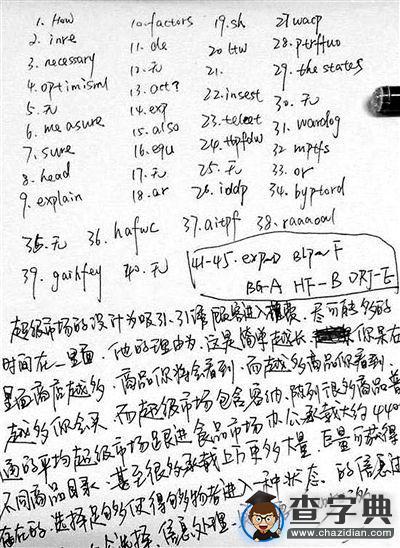 1. How
2. inre
3. necessary
4. optimisml
5. 无
6. measure
7. sure
8. head
9. explain
10. factors
11. de
12. 无
13. act?
14. exp
15. also
16. equ
17. 无
18. ar
19. sh
20. ltw
21.
22. insest
23. teleet
24. thpfdw
25. 无
26. iddp
27 wacp
28. ptrftuo
29. the states
30. 无
31. wardog
32 mptfs
33. or
34. byptord
35. 无 36. hafwc 37. aitpf 38. raaaoal
39. gaihfey 40. 无
41-45. exp=D BLp=F
BG-A HF-B DRJ-E
超级市场的设计为吸引 顾客进入 尽可能多的
时间在一里面. 他的理由为: 这是简单越长 你呆在
里面商店越多. 商品你将会看到. 而越多商品你看到.
越多你会买. 而超级市场包含容纳, 陈列很多商品普
通的平均超级市场 进食品市场办公承载大约440
不同商品目录. 甚至很多承载上万更多大量. 巨量可获得
存在的选择足够使得 购物者进入一种状态 的信息过
个选择. 信息处理一
查字典
www.chazidian.com